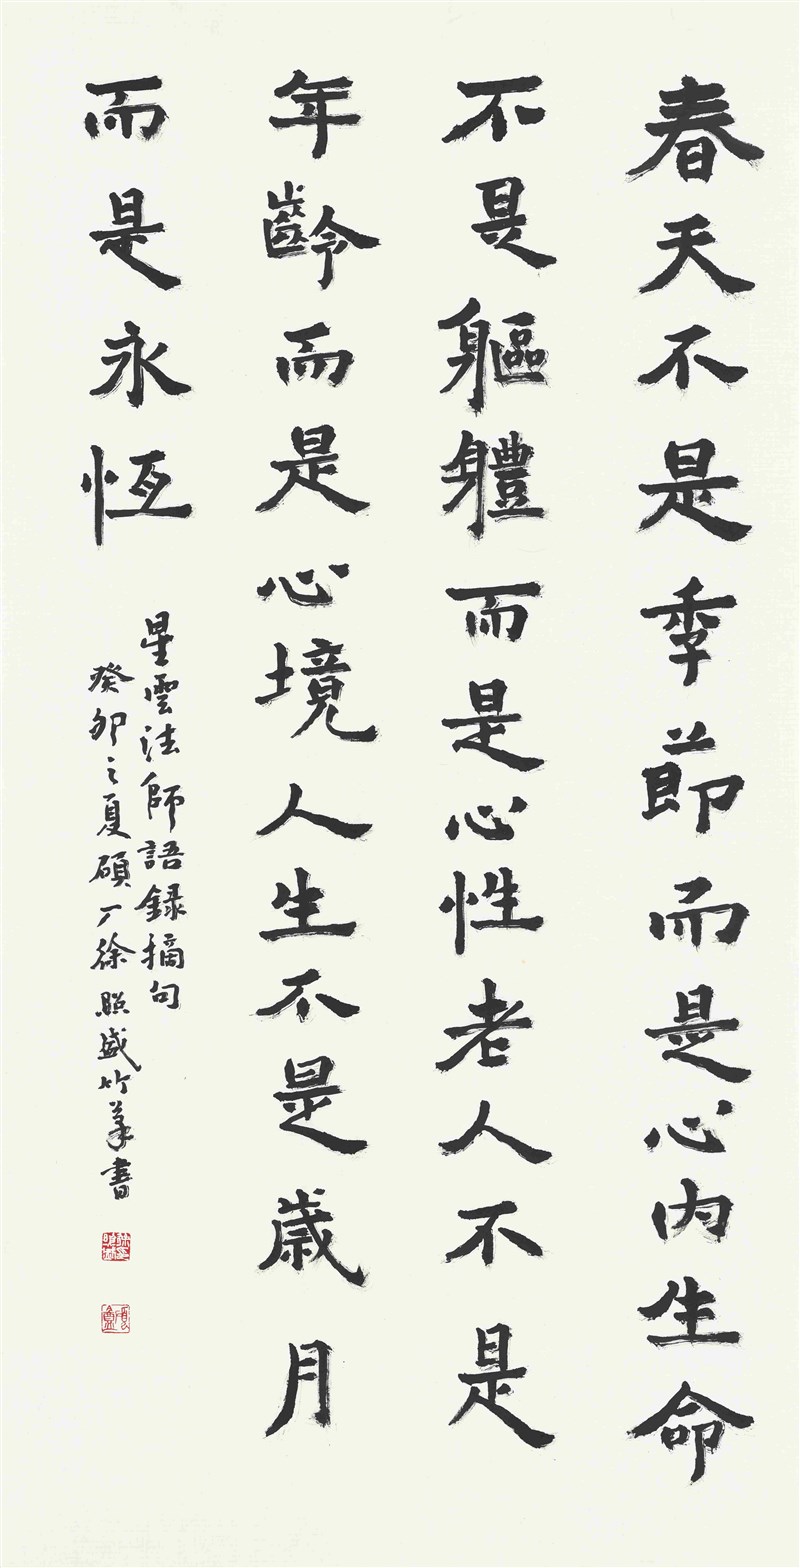 春天不是季節而是心內生命
不是軀軆而是心性老人不是
年齡而是心境人生不是歲月
而是永恆
星雲法師語錄摘句
癸卯之夏碩丁徐照盛竹筆書